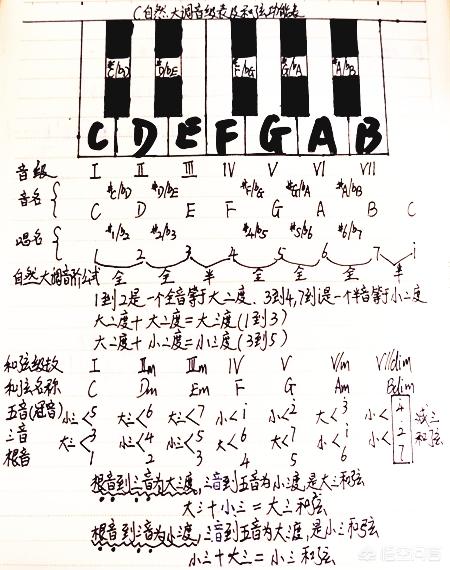 C自然大调音级表及和弦功能表
#C/bD #D/bE #F/bG #G/bA #A/bB
C D E F G A B
音级 I II III IV V VI VII
#C/bD #D/bE #F/bG #G/bA #A/bB
音名 { C D E F G A B C
#1/b2 #2/b3 #4/b5 #5/b6 #6/b7
唱名 { 1 2 3 4 5 6 7 i
自然大调音阶公式 全 全 半 全 全 全 半
1到2是一个全音等于大二度、3到4,7到i是一个半音等于小二度
大二度+大二度=大三度(1到3)
大二度+小二度=小三度(3到5)
和弦级数 I IIm IIIm IV V VIm VIIdim
和弦名称 C Dm Em F G Am Bdim
五音(冠音) 小三<5 大三<6 大三<7 小<i 小<2 大<3 小<4 减三
三音 大三<3 小三<4 小三<5 大<6 大<7 小<i 小<2 和弦
根音 1 2 3 4 5 6 7
根音到三音为大三度,三音到五音为小三度,是大三和弦
大三+小三=大三和弦
根音到三音为小三度,三音到五音为大三度,是小三和弦
小三+大三=小三和弦
悟空问答